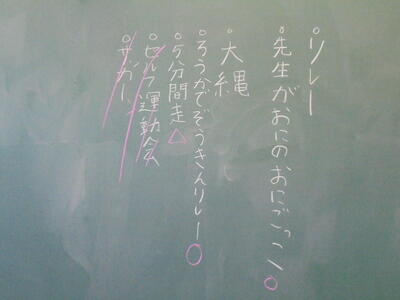 。リレー
。先生がおにのおにごっこ○
。大縄
。ろうかでぞうきんリレー○
。5分間走△
。セルフ運動会